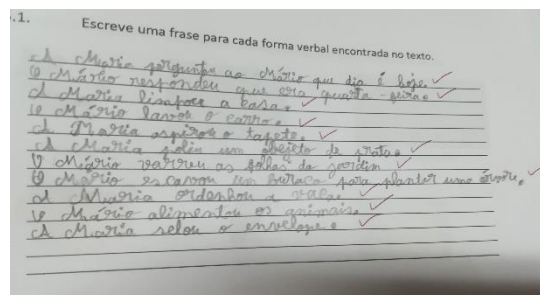 .1. Escreve uma frase para cada forma verbal encontrada no texto.
A Maria perguntou ao Mário que dia é hoje.
O Mário respondeu que era quarta-feira.
A Maria limpou a casa.
O Mário lavou o carro.
A Maria aspirou o tapete.
A Maria poliu um objeto de prata.
O Mário varreu as folhas do jardim
O Mário escavou um buraco para plantar uma árvore.
A Maria ordenhou a vaca.
O Mário alimentou os animais.
A Maria selou o envelope.